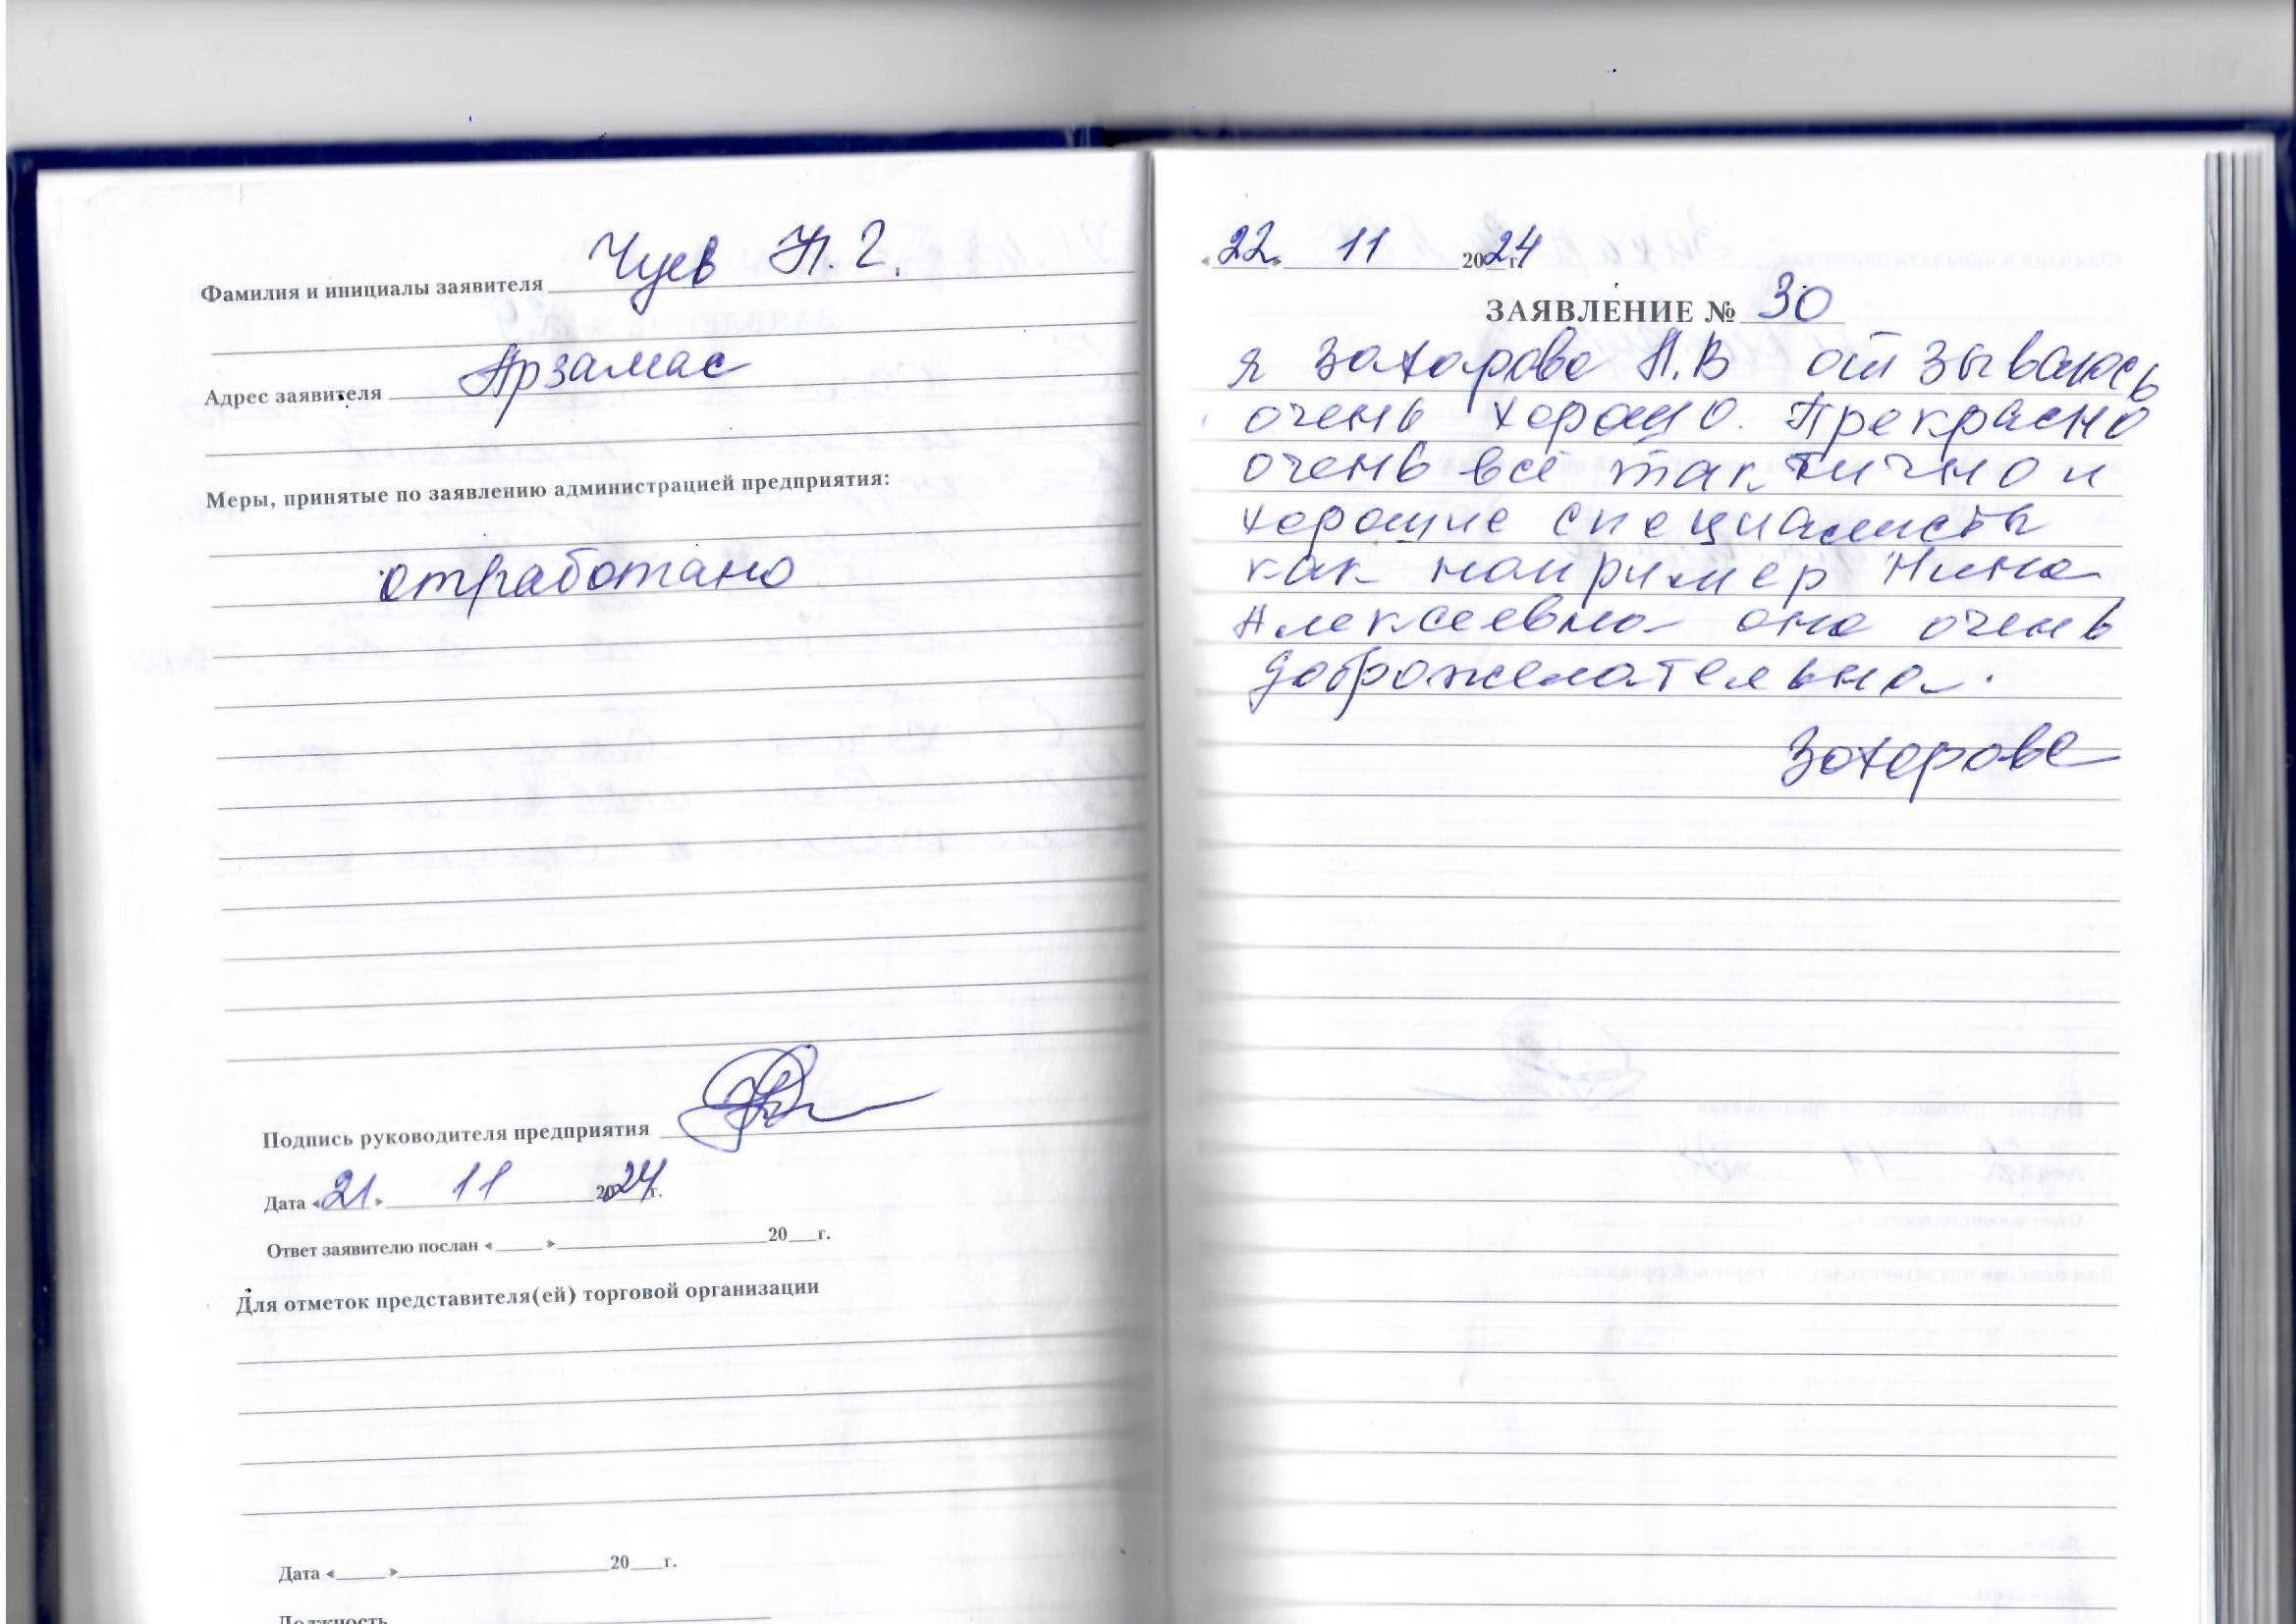 Фамилия и инициалы заявителя Чуев П. Г.
Адрес заявителя Арзамас
Меры, принятые по заявлению администрацией предприятия:
отработано
Подпись руководителя предприятия
Дата «21» 11 2024г.
Ответ заявителю послан «____» ____ 20__г.
Для отметок представителя(ей) торговой организации
Дата «____» ____ 20__г.
Должность
«22» 11 2024г.
ЗАЯВЛЕНИЕ № 30
я Захарова Н.В отзываюсь
очень хорошо. Прекрасно
очень всё тактично и
хорошие специалисты
как например Нина
Алексеевна она очень
доброжелательна.
Захарова